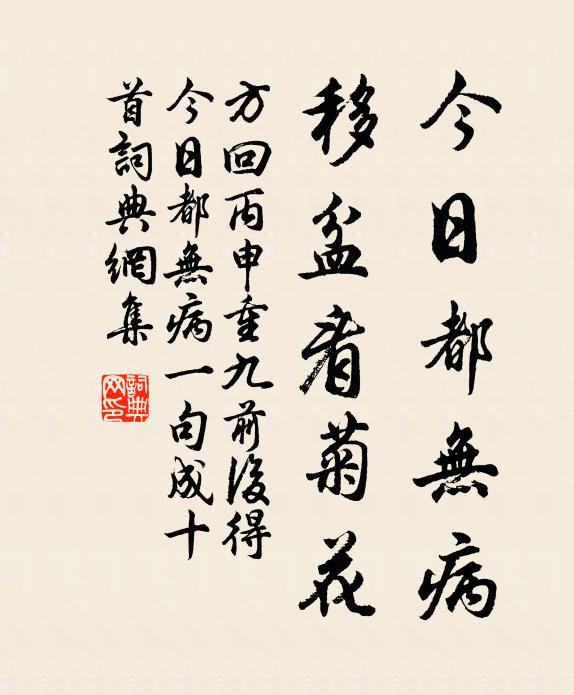 今日都無病
移盆看菊花
方回丙申重九前後得
今日都無病一句成十
首詞典網集
詞典
网印